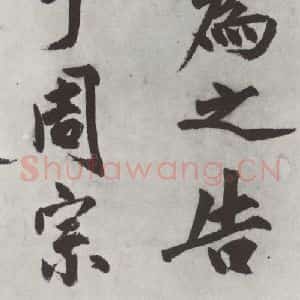 為之告
于周宗
Shufawang.CN